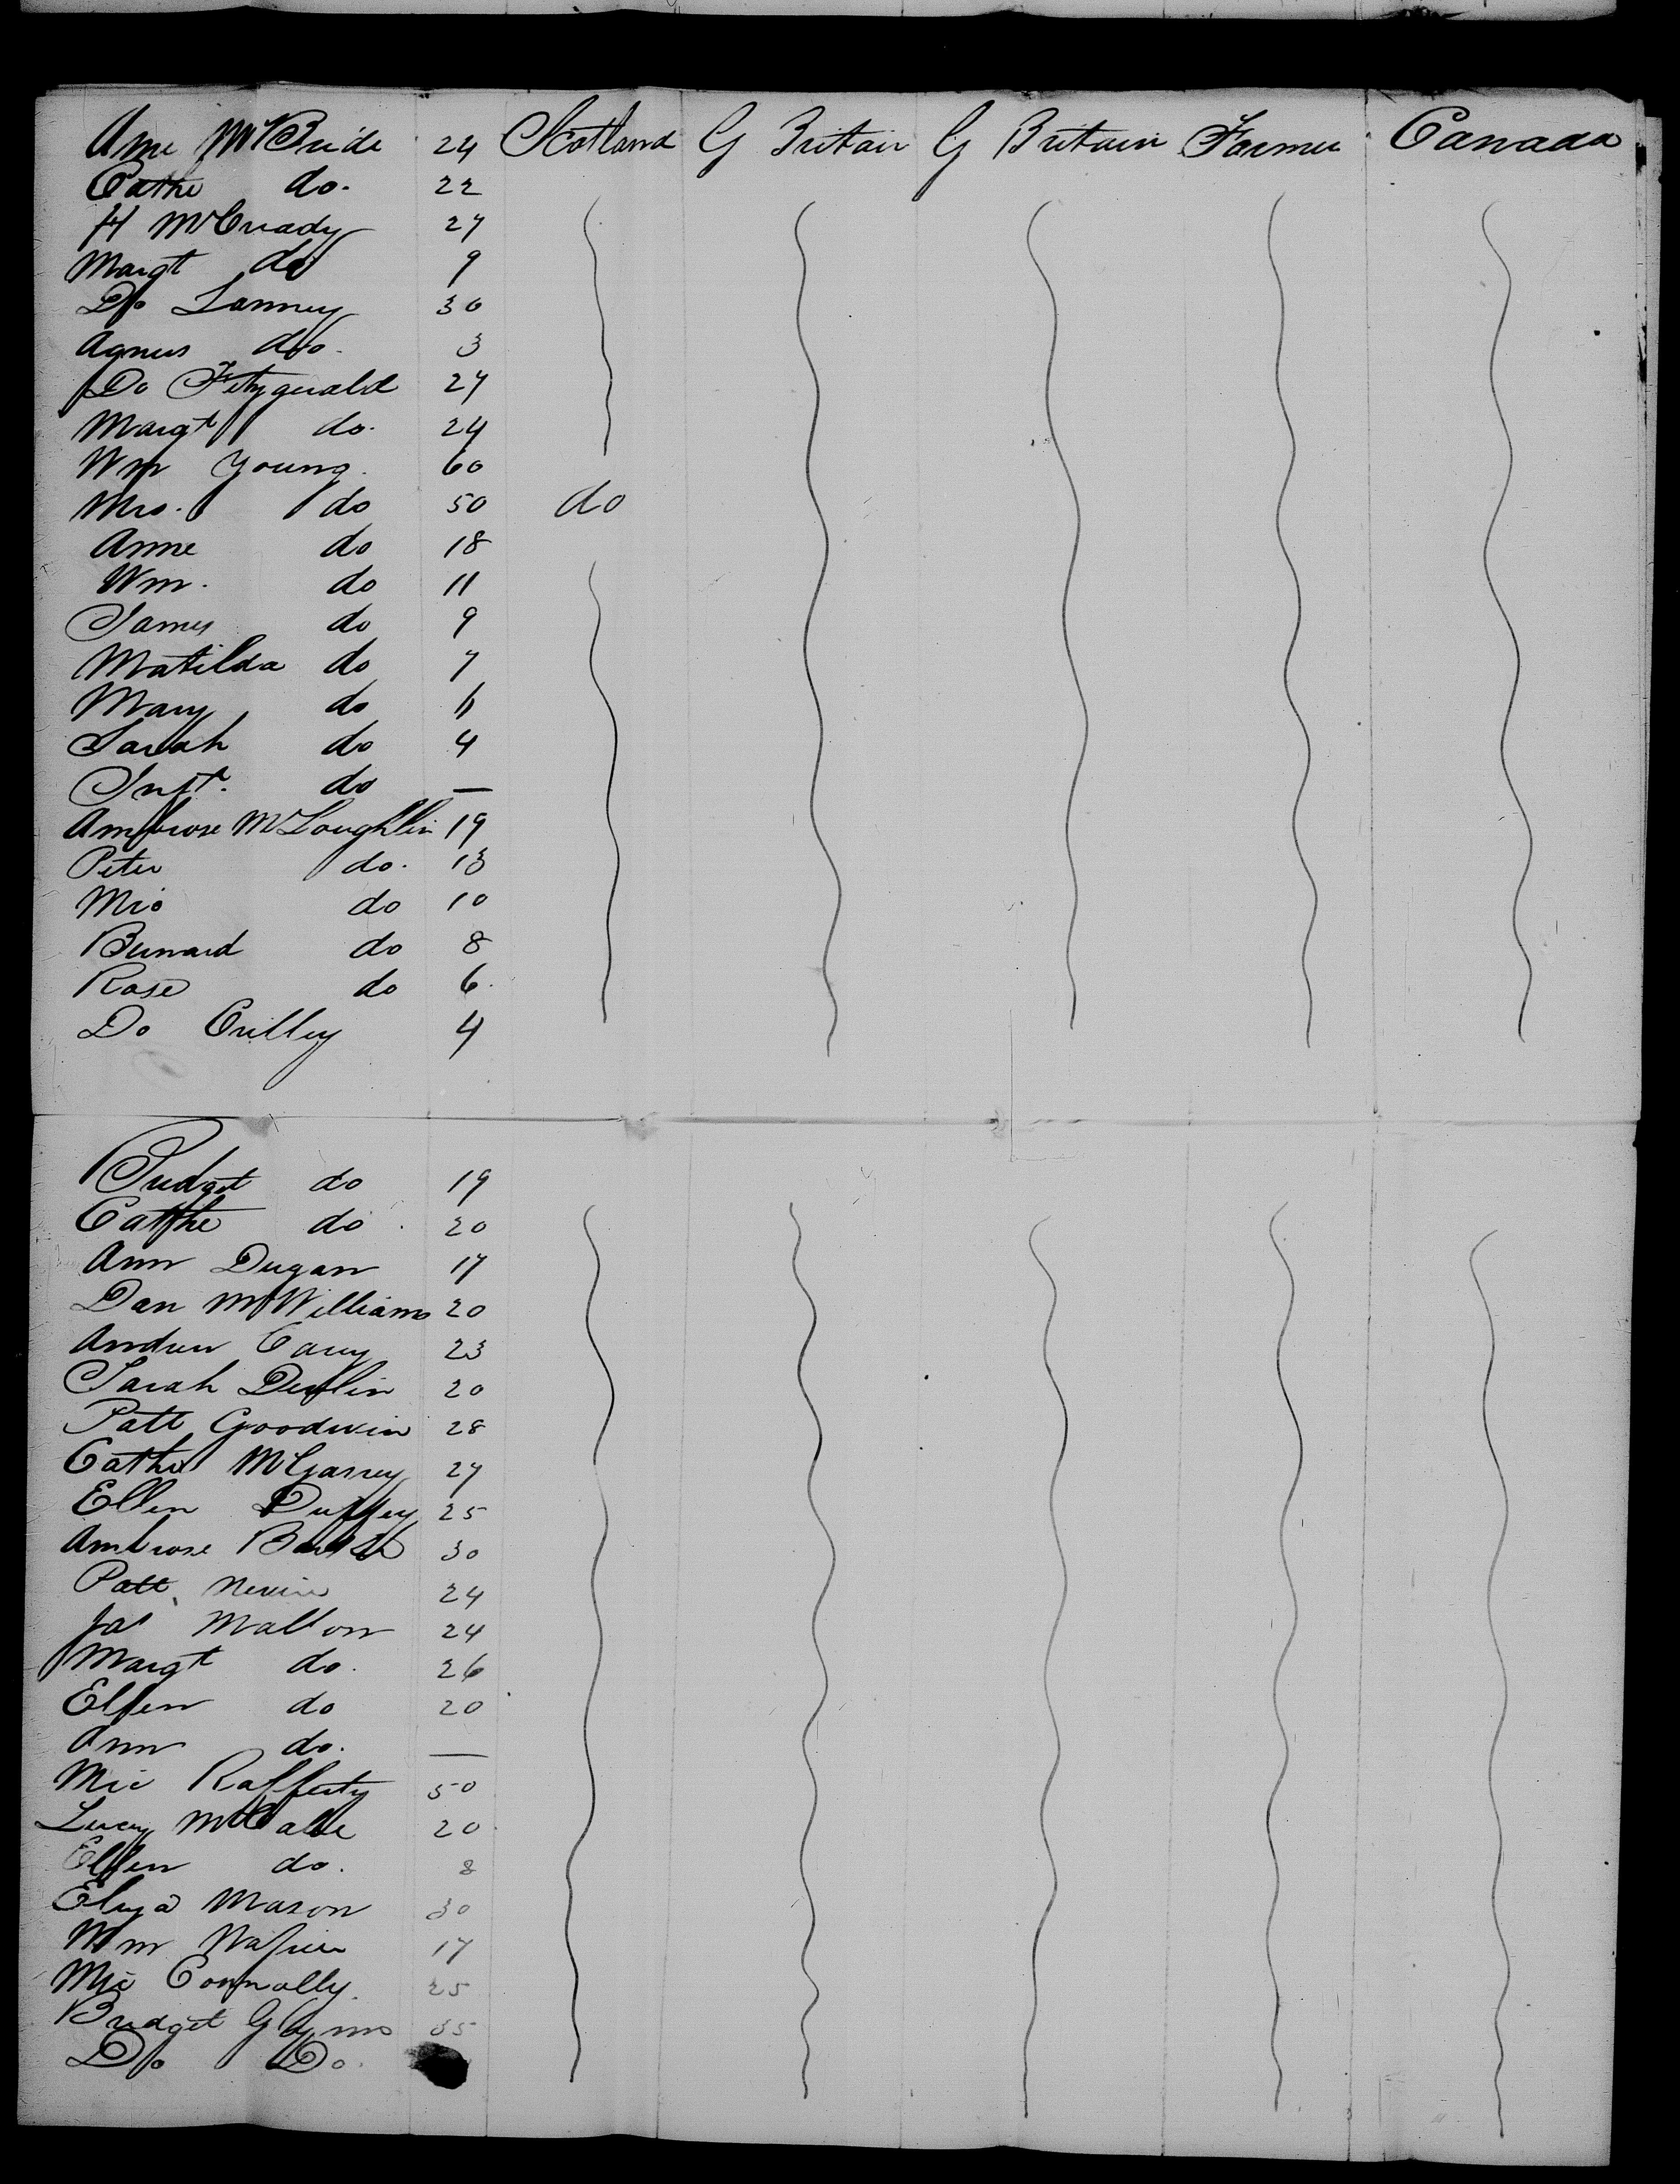 Ann McBride 24 Scotland G Britain G Britain Farmer Canada
Cathe do. 22
H McCready 27
Margt do 9
Do Lanney 30
Agnes do. 3
Do Fitzgerald 27
Margt do. 24
Wm Young 60
Mrs. do 50 do
Anne do 18
Wm. do 11
James do 9
Matilda do 7
Mary do 6
Sarah do 4
Inft. do —
Ambrose McLoughlin 19
Peter do. 13
Mic do 10
Bernard do 8
Rose do 6
Do Crilley 4
Bridget do 19
Cathe do 20
Ann Dugan 17
Dan McWilliams 20
Andrew Carey 23
Sarah Devlin 20
Patt Goodwin 28
Cathe McGarvey 27
Ellen Duffey 25
Ambrose 30
Patt Nevin 24
Jas Mallon 24
Margt do. 26
Ellen do 20
Ann do. —
Mic Rafferty 50
Lucy McCabe 20
Ellen do. 8
Eliza Mason 30
Wm Napier 17
Mic Connolly. 25
Bridget Glynns 35
Do Do.